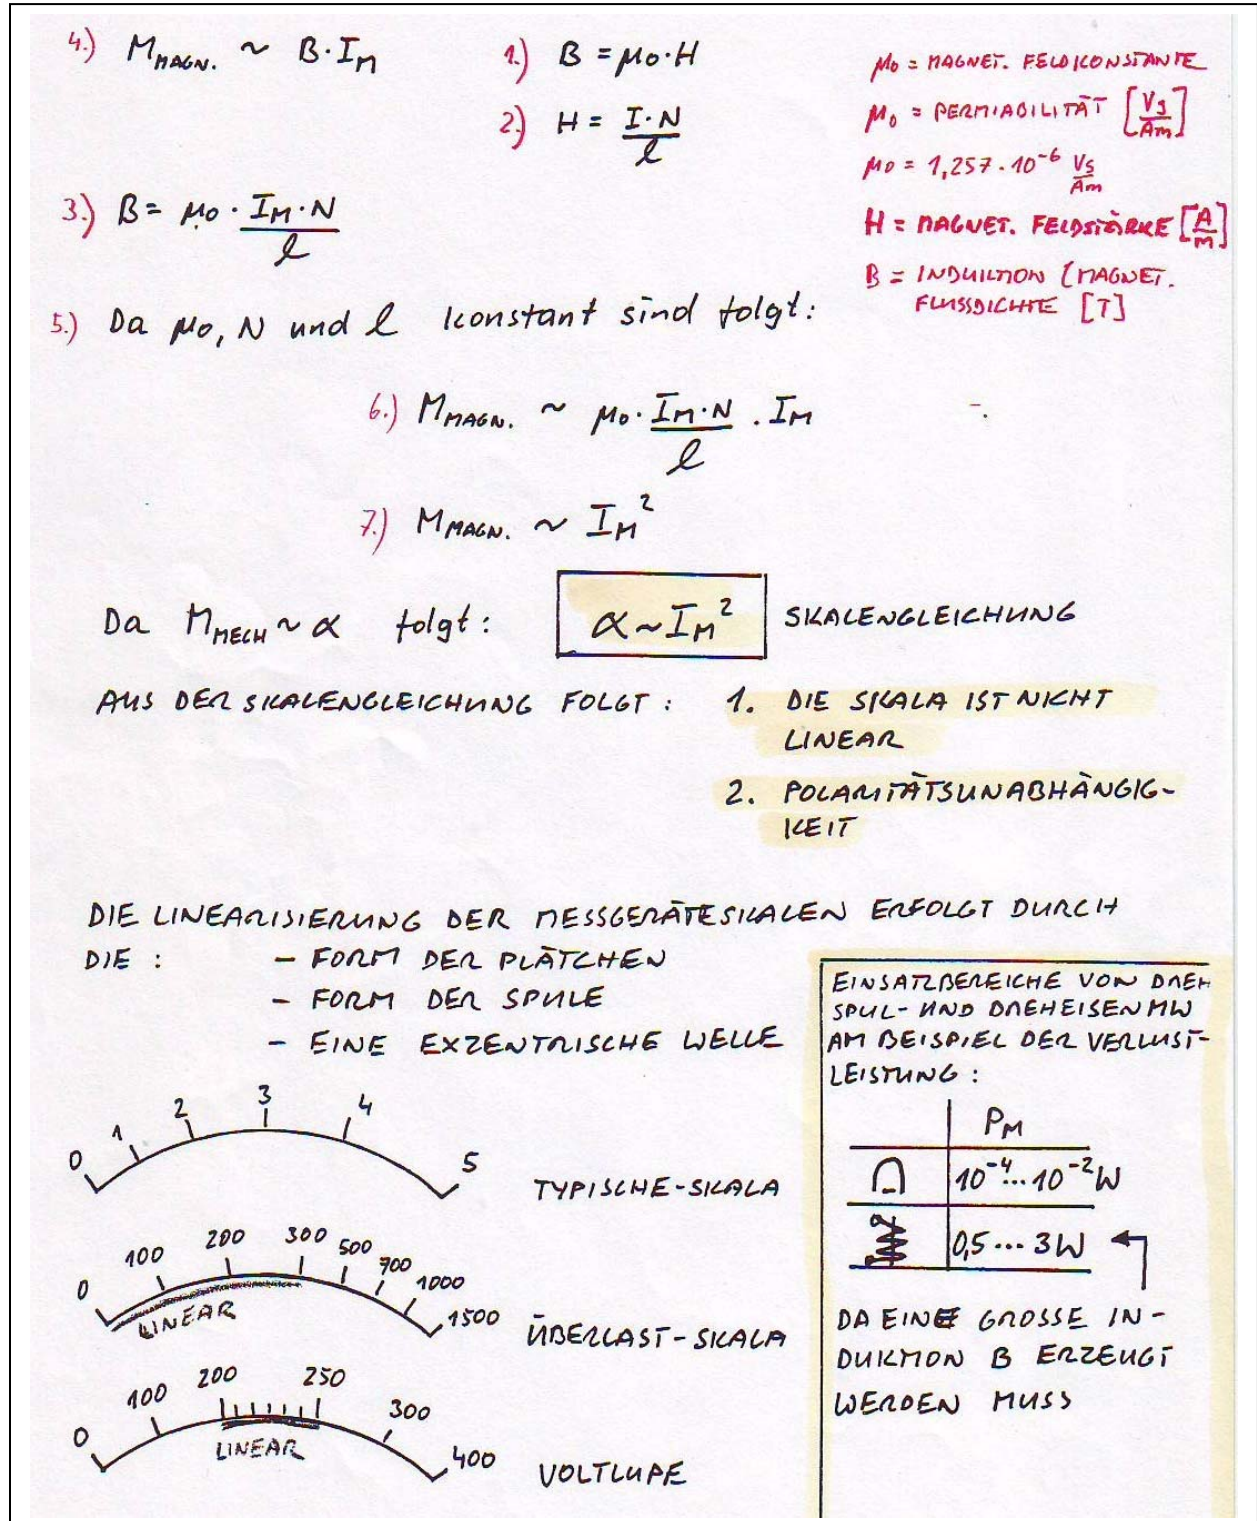 4.) M_MAGN. ~ B·I_M
1.) B = μ₀·H
2.) H = I·N / l
μ₀ = MAGNET. FELDKONSTANTE
μ₀ = PERMIABILITÄT [Vs/Am]
μ₀ = 1,257·10⁻⁶ Vs/Am
H = MAGNET. FELDSTÄRKE [A/m]
B = INDUKTION (MAGNET.
FLUSSDICHTE [T]
3.) B = μ₀ · I_M·N / l
5.) Da μ₀, N und l konstant sind folgt:
6.) M_MAGN. ~ μ₀ · I_M·N / l · I_M
7.) M_MAGN. ~ I_M²
Da M_MECH ~ α folgt: α ~ I_M² SKALENGLEICHUNG
AUS DER SKALENGLEICHUNG FOLGT: 1. DIE SKALA IST NICHT
LINEAR
2. POLARITÄTSUNABHÄNGIG-
KEIT
DIE LINEARISIERUNG DER MESSGERÄTESKALEN ERFOLGT DURCH
DIE: - FORM DER PLÄTCHEN
- FORM DER SPULE
- EINE EXZENTRISCHE WELLE
0 1 2 3 4 5
TYPISCHE-SKALA
0 100 200 300 500 700 1000 1500
LINEAR
ÜBERLAST-SKALA
0 100 200 250 300 400
LINEAR
VOLTLUPE
EINSATZBEREICHE VON DREH
SPUL- UND DREHEISEN MW
AM BEISPIEL DER VERLUST-
LEISTUNG:
P_M
10⁻⁴...10⁻² W
0,5...3W
DA EINE GROSSE IN-
DUKTION B ERZEUGT
WERDEN MUSS